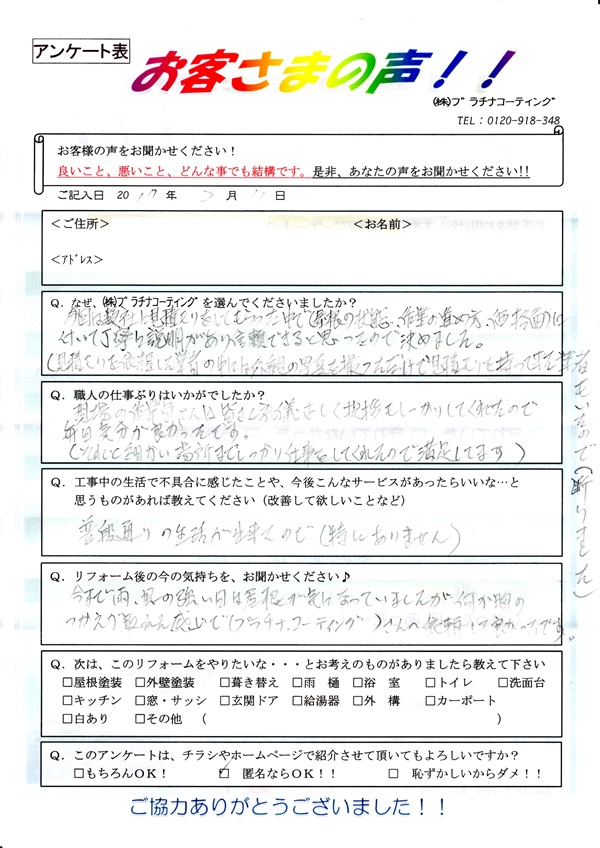 アンケート表
お客さまの声！！
㈱プラチナコーティング
TEL：0120-918-348
お客様の声をお聞かせください！
良いこと、悪いこと、どんな事でも結構です。是非、あなたの声をお聞かせください!!
ご記入日 20 17 年 月 11 日
＜ご住所＞ ＜お名前＞
＜ｱﾄﾞﾚｽ＞
Q．なぜ、㈱プラチナコーティングを選んでくださいましたか？
今回は数社に見積りをしてもらった中で(屋根の状態、作業の進め方、価格面)に
付いて丁寧な説明があり信頼できると思ったので決めました。
(見積もりを依頼した業者の中には外観の写真を撮っただけで見積もりを持って来た業者もいたので(断りました)
Q．職人の仕事ぶりはいかがでしたか？
現場の作業員さんは皆さん礼儀正しく挨拶もしっかりしてくれたので
毎日気分が良かったです。
(それに細かい場所までしっかり仕事をしてくれたので満足してます)
Q．工事中の生活で不具合に感じたことや、今後こんなサービスがあったらいいな…と
思うものがあれば教えてください（改善して欲しいことなど）
普段通りの生活が出来たので(特にありません)
Q．リフォーム後の今の気持ちを、お聞かせください♪
今まで雨、風の強い日は屋根が気になっていましたが何か胸の
つかえが取れた感じで(プラチナ.コーティング)さんへ依頼して良かったです。
Q．次は、このリフォームをやりたいな・・・とお考えのものがありましたら教えて下さい
□屋根塗装 □外壁塗装 □葺き替え □雨 樋 □浴 室 □トイレ □洗面台
□キッチン □窓・サッシ □玄関ドア □給湯器 □外 構 □カーポート
□白あり □その他 （ ）
Q．このアンケートは、チラシやホームページで紹介させて頂いてもよろしいですか？
□もちろんOK！ ☑ 匿名ならOK！！ □ 恥ずかしいからダメ！！
ご協力ありがとうございました！！